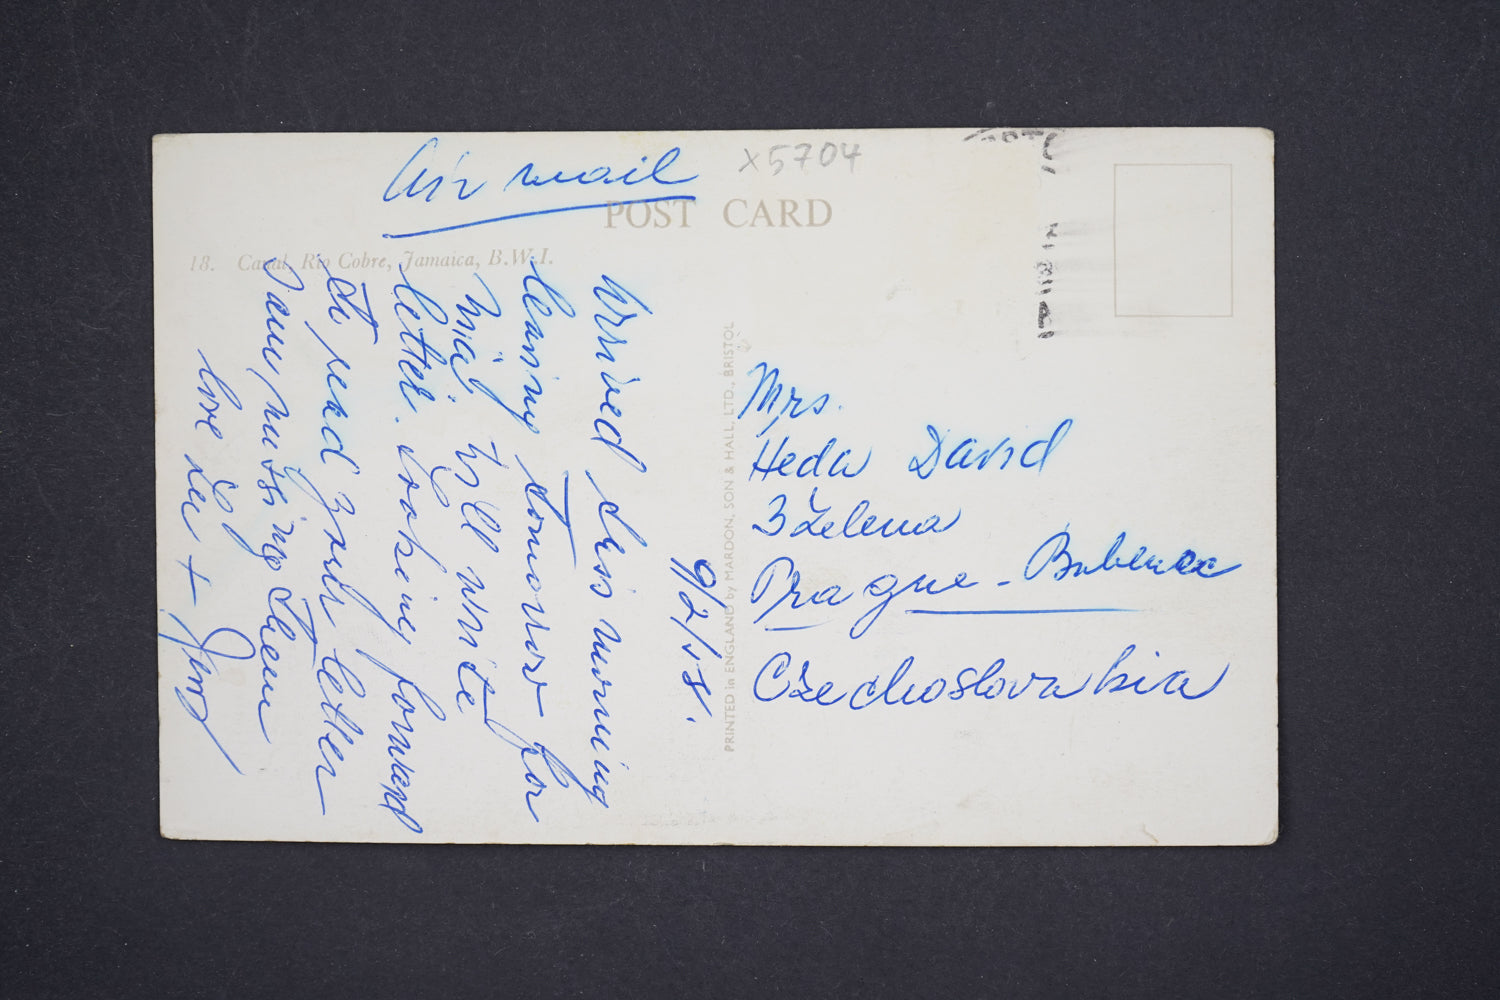 Air mail
x5704
POST CARD
18. Canal, Rio Cobre, Jamaica, B.W.I.
9/2/58.
Arrived this morning
leaving tomorrow for
will write
letter. Looking forward
to read your letter
I am missing them
love you +
PRINTED in ENGLAND by MARDON, SON & HALL, LTD., BRISTOL
Mrs.
Heda David
3 Zelena
Prague - Bubenec
Czechoslovakia